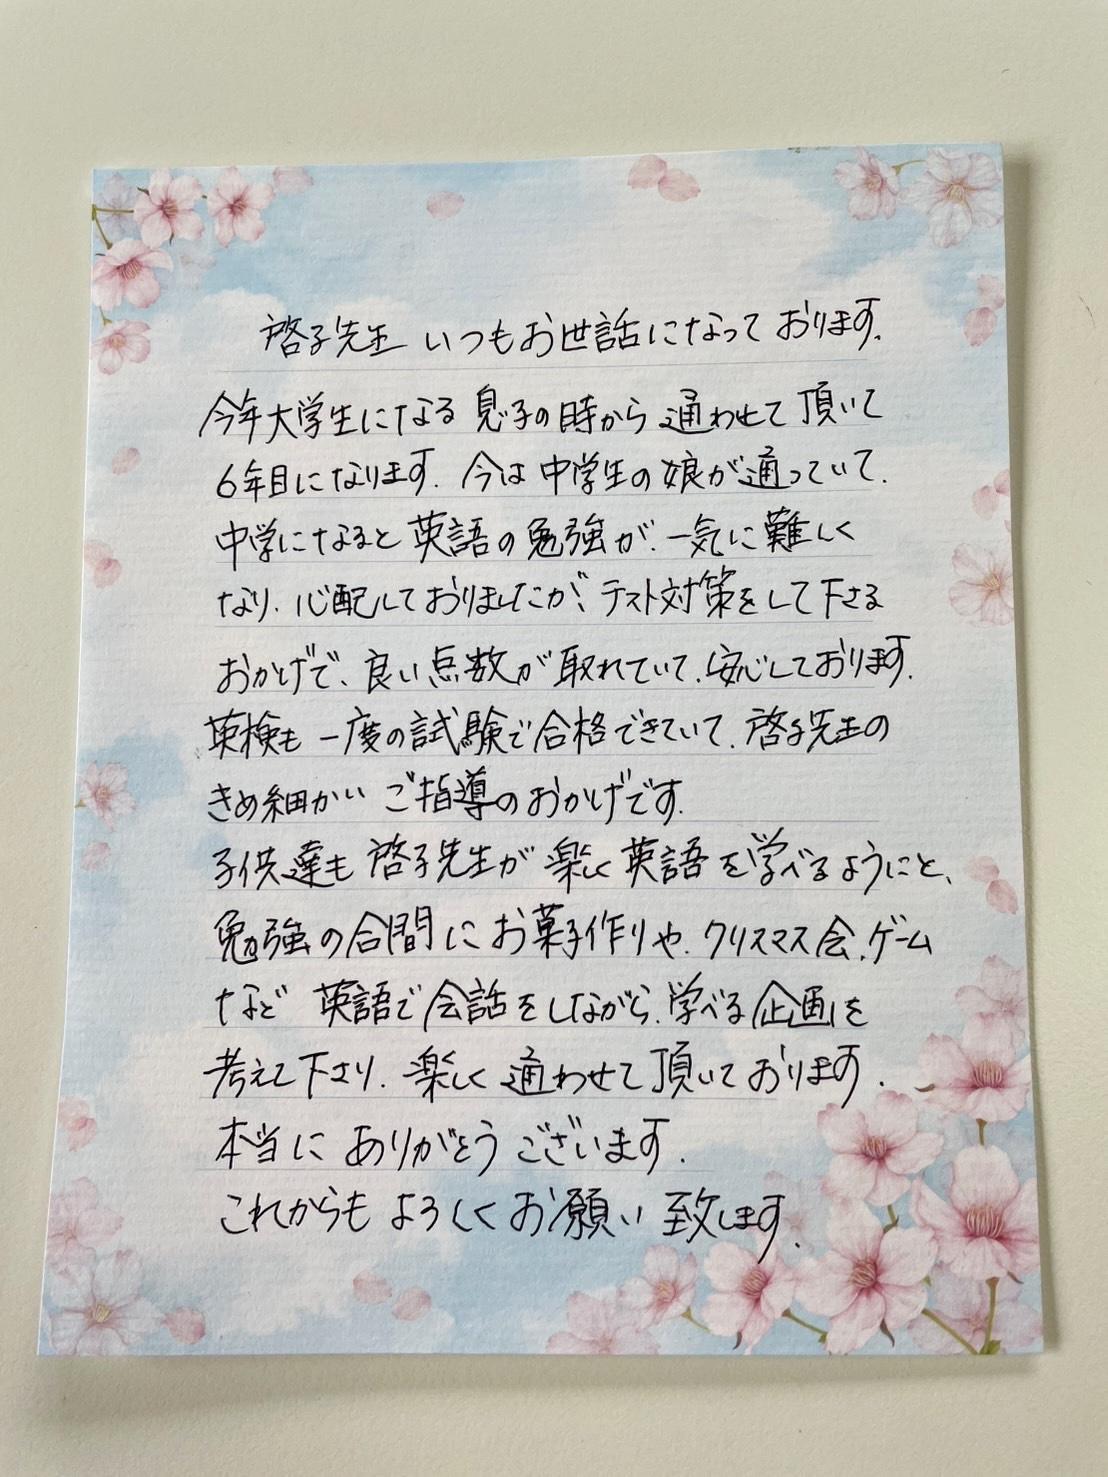 啓子先生 いつもお世話になっております.
今年大学生になる 息子の時から 通わせて 頂いて
6年目になります. 今は 中学生の 娘が通っていて.
中学になると 英語の 勉強が. 一気に難しく
なり. 心配しておりましたが、テスト対策をして下さる
おかげで、良い点数が 取れていて. 安心しております.
英検も 一度の試験で合格できていて. 啓子先生の
きめ細かい ご指導のおかげです.
子供達も 啓子先生が 楽しく 英語 を学べるようにと、
勉強の合間に お菓子作りや. クリスマス会. ゲーム
など 英語で会話をしながら. 学べる企画を
考えて下さり. 楽しく 通わせて頂いております.
本当に ありがとう ございます.
これからも よろしくお願い 致します.